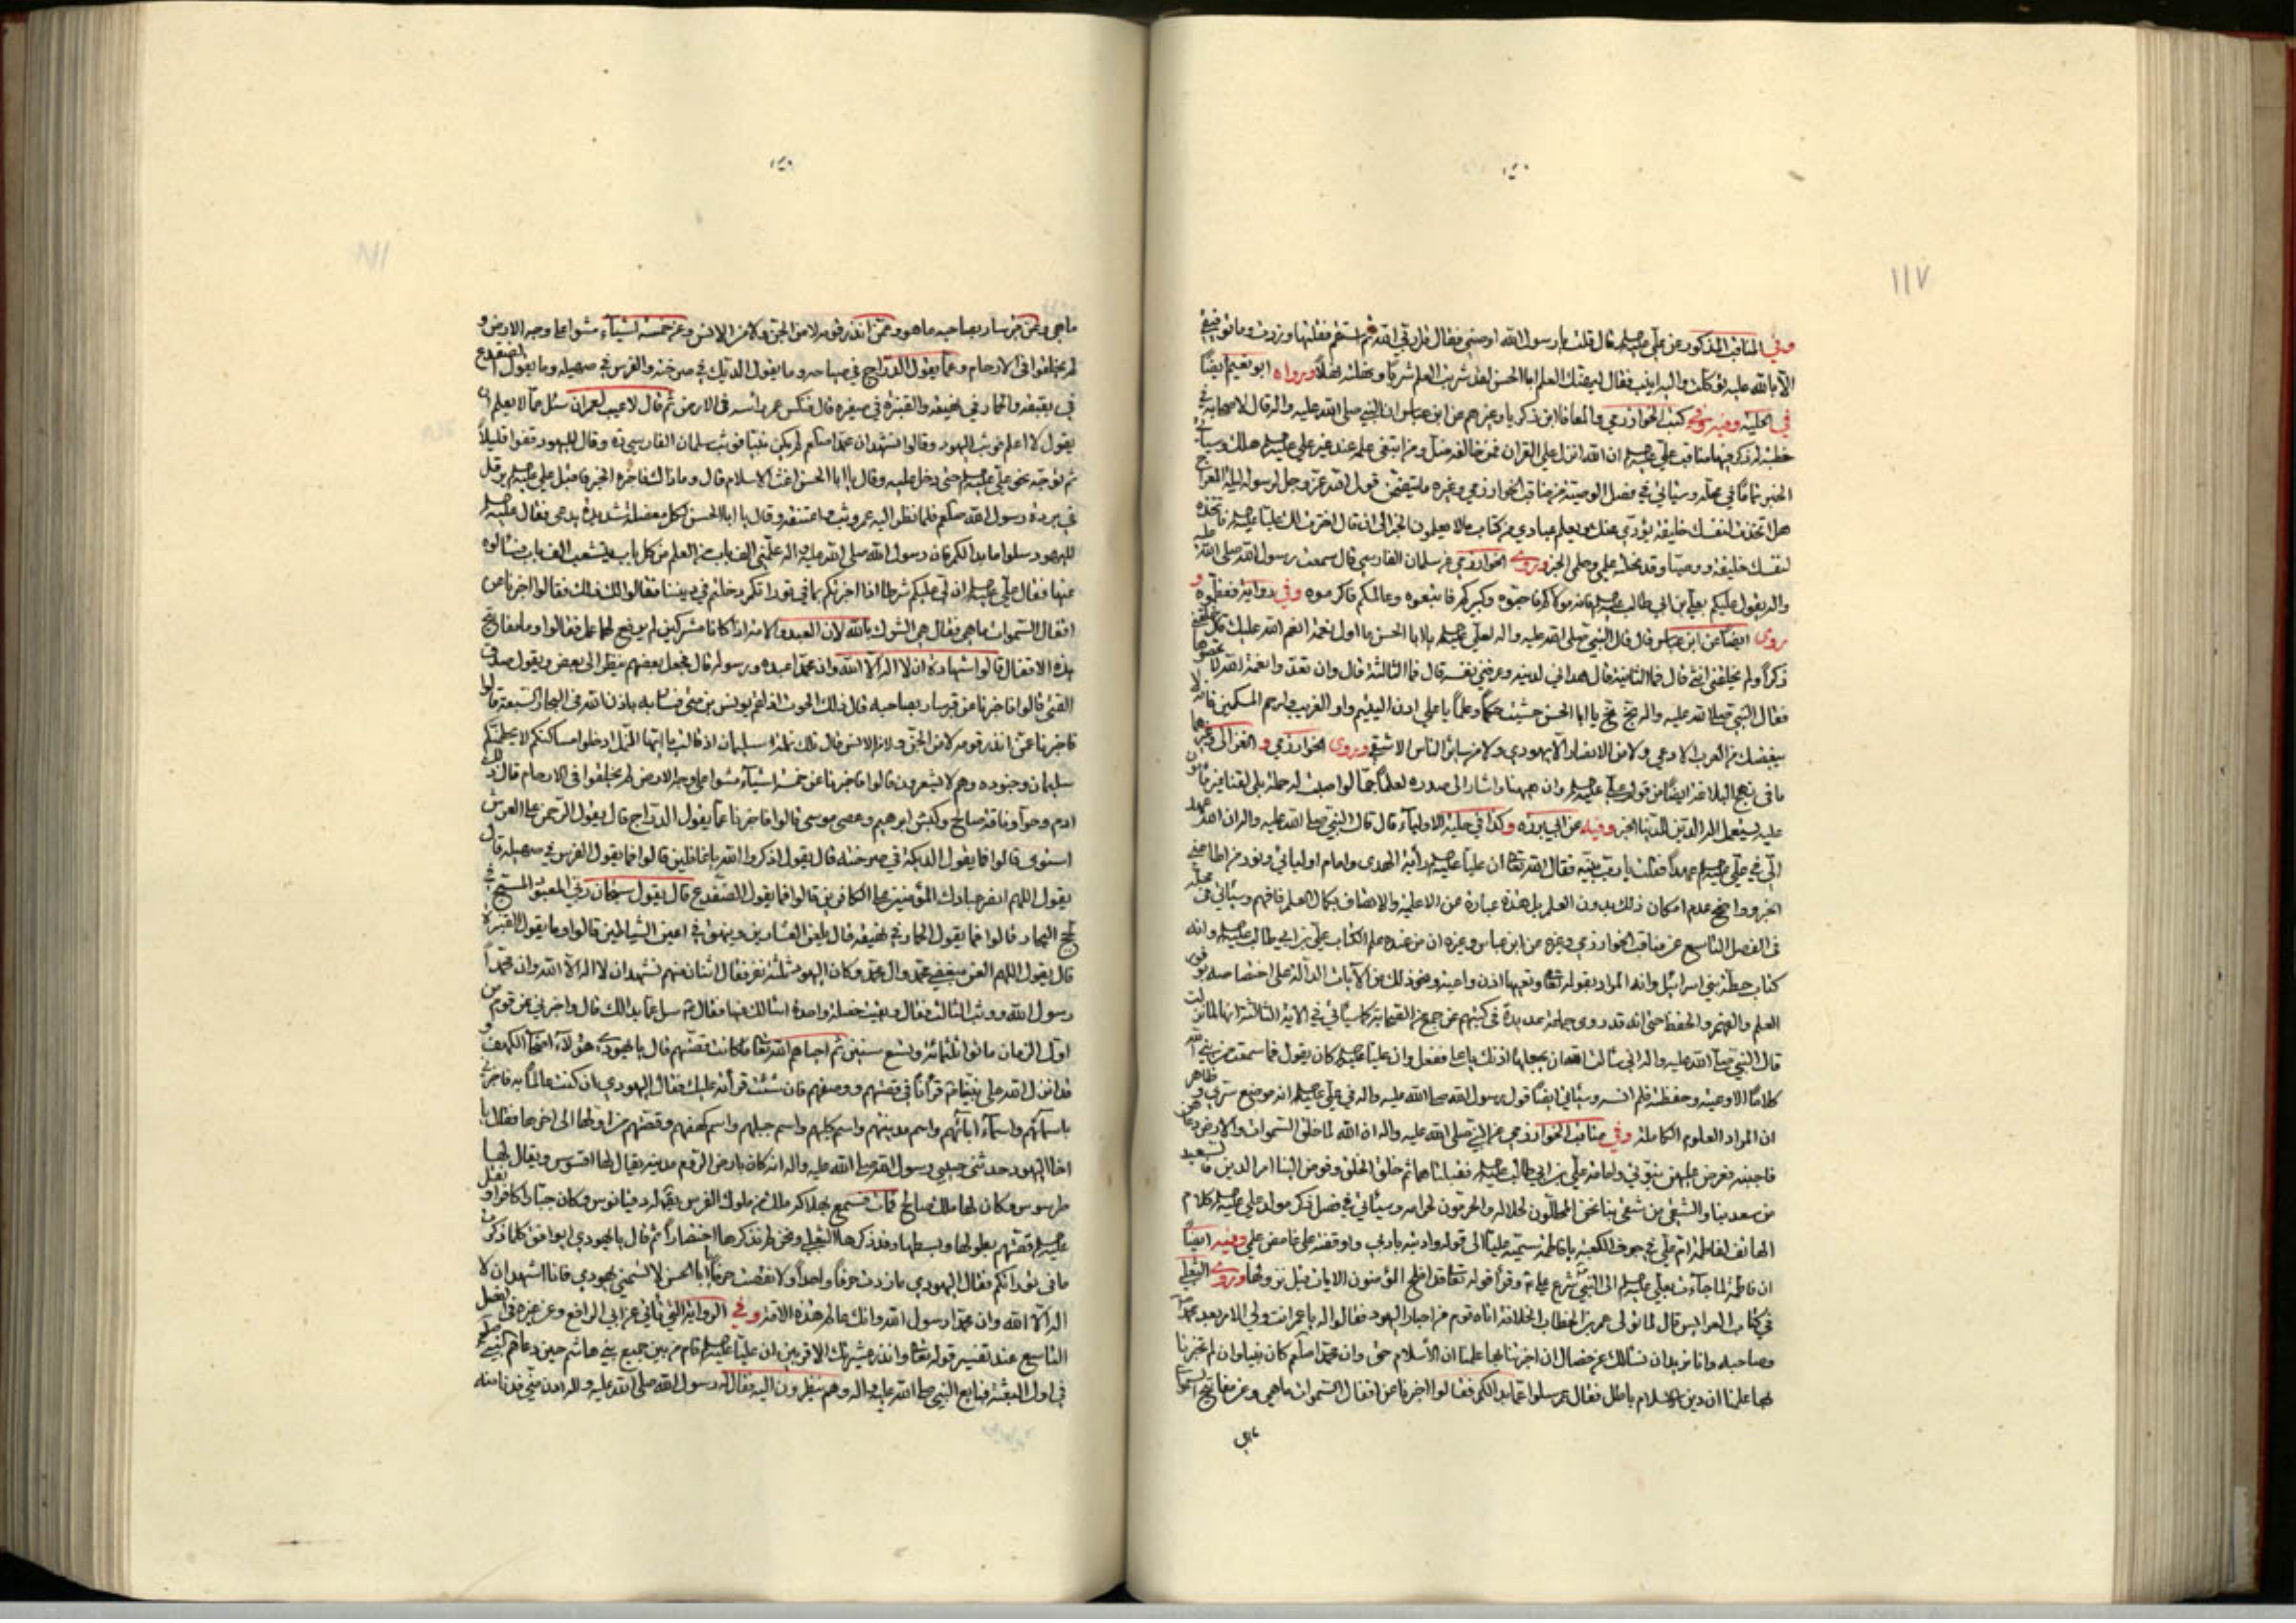 ١١٧
وفي المناقب المذكور عن علي عليه السلام قال قلت يا رسول الله اوصني فقال قل ربي الله ثم استقم فقلتها وزدت وما توفيقي
الا بالله عليه توكلت واليه انيب فقال ليهنك العلم ابا الحسن لقد شربت العلم شربا ونهلته نهلا ورواه ابو نعيم ايضا
في الحلية وفي كتب الخوارزمي والمعافا ابن زكريا وغيرهم عن ابن عباس ان النبي صلى الله عليه واله قال لاصحابه في
خطبة له ذكر فيها مناقب علي عليه السلام ان الله انزل علي القران فمن خالفه ضل ومن ابتغى علمه عند غير علي عليه السلام هلك وسيأتي
الخبر تماما في محله وسيأتي في فصل الوصية من مناقب الخوارزمي وغيره ما يتضمن قول الله عز وجل لرسوله ليلة المعراج
هل اتخذت لنفسك خليفة يؤدي عنك ويعلم عبادي من كتابي ما لا يعلمون الخبر الى ان قال اخترت لك عليا عليه السلام فاتخذه
لنفسك خليفة ووصيا وقد نحلته علمي وحلمي الخبر وروى الخوارزمي عن سلمان الفارسي قال سمعت رسول الله صلى الله عليه
واله يقول عليكم بعلي بن ابي طالب عليه السلام فانه مولاكم فاحبوه وكبيركم فاتبعوه وعالمكم فاكرموه وفي رواية فعظموه و
روى ايضا عن ابن عباس قال قال النبي صلى الله عليه واله لعلي عليه السلام يا ابا الحسن ما اول نعمة انعم الله عليك قال خلقني
ذكرا ولم يخلقني انثى قال فما الثانية قال هداني لدينه وعرفني نفسه قال فما الثالثة قال وان تعدوا نعمة الله لا تحصوها
فقال النبي صلى الله عليه واله بخ بخ يا ابا الحسن حشيت حكما وعلما يا علي ادن اليتيم واو الغريب وارحم المسكين فانه لا
يبغضك من العرب الا دعي ولا من الانصار الا يهودي ولا من سائر الناس الا شقي وروى الخوارزمي والغزالي وغيرهما
ما في نهج البلاغة ايضا من قول علي عليه السلام وان ههنا واشار الى صدره لعلما جما لو اصبت له حملة بلى لقنا غير مأمون
عليه يستعمل الة الدين للدنيا الخبر وفيه عن ابي برزة وكذا في حلية الاولياء قال قال النبي صلى الله عليه واله ان الله عهد
الي في علي عليه السلام عهدا فقلت يا رب بينه فقال الله تعالى ان عليا عليه السلام راية الهدى وامام اوليائي ونور من اطاعني
الخبر وواضح عدم امكان ذلك بدون العلم بل هذه عبارة عن الاعلمية والاتصاف بكمال العلم فافهم وسيأتي في محله
في الفصل التاسع عن مناقب الخوارزمي وغيره عن ابن عباس وغيره ان من عنده علم الكتاب علي بن ابي طالب عليه السلام وانه
كباب حطة بني اسرائيل وانه المراد بقوله تعالى وتعيها اذن واعية ونحو ذلك من الايات الدالة على اختصاصه بوفور
العلم والفهم والحفظ حتى انه قد روى جماعة عديدة في كتبهم عن جمع من الصحابة كما سيأتي في الاية الثالثة انها لما نزلت
قال النبي صلى الله عليه واله اني سألت الله ان يجعلها اذنك يا علي ففعل وان عليا عليه السلام كان يقول فما سمعت من نبي الله
كلاما الا وعيته وحفظته فلم انسه وسيأتي ايضا قول رسول الله صلى الله عليه واله في علي عليه السلام انه موضع سري وظاهر
ان المراد العلوم الكاملة وفي مناقب الخوارزمي عن النبي صلى الله عليه واله ان الله لما خلق السموات والارض دعاهن
فاجبنه فعرض عليهن نبوتي وامامة علي بن ابي طالب عليه السلام فقبلتاهما ثم خلق الخلق وفوض الينا امر الدين فالسعيد
من سعد بنا والشقي من شقي بنا نحن المحللون لحلاله والمحرمون لحرامه وسيأتي في فصل ذكر مولد علي عليه السلام كلام
الهاتف لفاطمة ام علي في جوف الكعبة يا فاطمة سميه عليا الى قوله وادبته بادبي واوقفته على غامض علمي وفيه ايضا
ان فاطمة لما جاءت بعلي عليه السلام الى النبي شرع علي وقرأ قوله تعالى قد افلح المؤمنون الايات قبل نزولها وروى الثعلبي
في كتاب العرايس قال لما تولى عمر بن الخطاب الخلافة اتاه قوم من احبار اليهود فقالوا له يا عمر انت ولي الامر بعد محمد
وصاحبه وانا نريد ان نسألك عن خصال ان اخبرتنا بها علمنا ان الاسلام حق وان محمدا كان نبيا وان لم تخبرنا
بها علمنا ان دين الاسلام باطل فقال عمر سلوا عما بدا لكم فقالوا اخبرنا عن اقفال السموات ما هي وعن مفاتيح السموات
ما هي
ما هي وعن قبر سار بصاحبه ما هو وعمن انذر قومه لا من الجن ولا من الانس وعن خمسة اشياء مشوا على وجه الارض و
لم يخلقوا في الارحام وعما يقول الدراج في صياحه وما يقول الديك في صرخته والفرس في صهيله وما يقول الضفدع
في نقيقه والحمار في نهيقه والقبرة في صفيره قال فنكس عمر رأسه في الارض ثم قال لا عيب لعمر ان سئل عما لا يعلم ان
يقول لا اعلم فوثب اليهود وقالوا نشهد ان محمدا لم يكن نبيا فوثب سلمان الفارسي وقال لليهود قفوا قليلا
ثم توجه نحو علي عليه السلام حتى دخل عليه وقال يا ابا الحسن اغث الاسلام قال وما ذاك فاخبره الخبر فاقبل علي عليه السلام يرفل
في بردة رسول الله فلما نظر اليه عمر وثب فاعتنقه وقال يا ابا الحسن لكل معضلة شديدة تدعى فقال عليه السلام
لليهود سلوا ما بدا لكم فان رسول الله صلى الله عليه واله علمني الف باب من العلم من كل باب يتشعب الف باب فسألوه
عنها فقال علي عليه السلام ان لي عليكم شرطا اذا اخبرتكم بما في توراتكم دخلتم في ديننا فقالوا لك ذلك فقالوا اخبرنا عن
اقفال السموات ما هي فقال هي الشرك بالله لان العبد والامة اذا كانا مشركين لم يرفع لهما عمل فقالوا وما مفاتيح
هذه الاقفال قالوا شهادة ان لا اله الا الله وان محمدا عبده ورسوله قال فجعل بعضهم ينظر الى بعض ويقول صدق
الفتى قالوا فاخبرنا عن قبر سار بصاحبه قال ذلك الحوت اذ التقم يونس بن متى فسار به باذن الله في البحار السبعة قالوا
فاخبرنا عمن انذر قومه لا من الجن ولا من الانس قال تلك نملة سليمان اذ قالت يا ايها النمل ادخلوا مساكنكم لا يحطمنكم
سليمان وجنوده وهم لا يشعرون قالوا فاخبرنا عن خمسة اشياء مشوا على وجه الارض لم يخلقوا في الارحام قال ذلك
ادم وحوا وناقة صالح وكبش ابرهيم وعصى موسى قالوا فاخبرنا عما يقول الدراج قال يقول الرحمن على العرش
استوى قالوا فما يقول الديكة في صرخته قال يقول اذكروا الله يا غافلين قالوا فما يقول الفرس في صهيله قال
يقول اللهم انصر عبادك المؤمنين على الكافرين قالوا فما يقول الضفدع قال يقول سبحان ربي المعبود المسبح في
لجج البحار قالوا فما يقول الحمار في نهيقه قال يلعن العشارين وينهق في اعين الشياطين قالوا وما يقول القبرة
قال يقول اللهم العن مبغضي محمد وال محمد وكان اليهود ثلثة نفر فقال اثنان منهم نشهد ان لا اله الا الله وان محمدا
رسول الله ووثب الثالث فقال وبقيت خصلة واحدة اسئالك عنها فقال سل عما بدا لك قال اخبرني عن قوم من
اول الزمان ماتوا ثلثمائة وتسع سنين ثم احياهم الله تعالى ما كانت قصتهم قال يا يهودي هؤلاء اصحاب الكهف و
قد انزل الله على نبينا قرأنا في قصتهم ووصفهم فان شئت قرأته عليك فقال اليهودي ان كنت عالما به فاخبرني
باسمائهم واسماء ابائهم واسم مدينتهم واسم كلبهم واسم جبلهم واسم كهفهم وقصتهم من اولها الى اخرها فقال يا
اخا اليهود حدثني حبيبي رسول الله صلى الله عليه واله انه كان بارض الروم مدينة يقال لها افسوس ويقال لها
طرسوس وكان لها ملك صالح فمات فسمع بهلاكه ملك من ملوك الفرس يقال له دقيانوس وكان جبارا كافرا و
عليه السلام قصتهم بطولها وبسطها وقد ذكرها الثعلبي ونحن لم نذكرها اختصارا ثم قال يا يهودي ايوافق كلما ذكرت
ما في توراتكم فقال اليهودي ما زدت حرفا واحدا ولا نقصت حرفا يا ابا الحسن لا تسميني يهودي فانا اشهد ان لا
اله الا الله وان محمدا رسول الله وانك عالم هذه الامة وفي الرواية التي تأتي عن ابي الرافع وغيره في الفصل
التاسع عند تفسير قوله تعالى وانذر عشيرتك الاقربين ان عليا عليه السلام قام من بين جميع بني هاشم حين دعاهم النبي
في اول البعثة فبايع النبي صلى الله عليه واله وهم ينظرون اليه فقال له رسول الله صلى الله عليه واله ادن مني فدنا منه